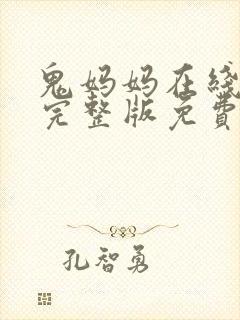 鬼妈妈在线
完整版免費
孔智勇